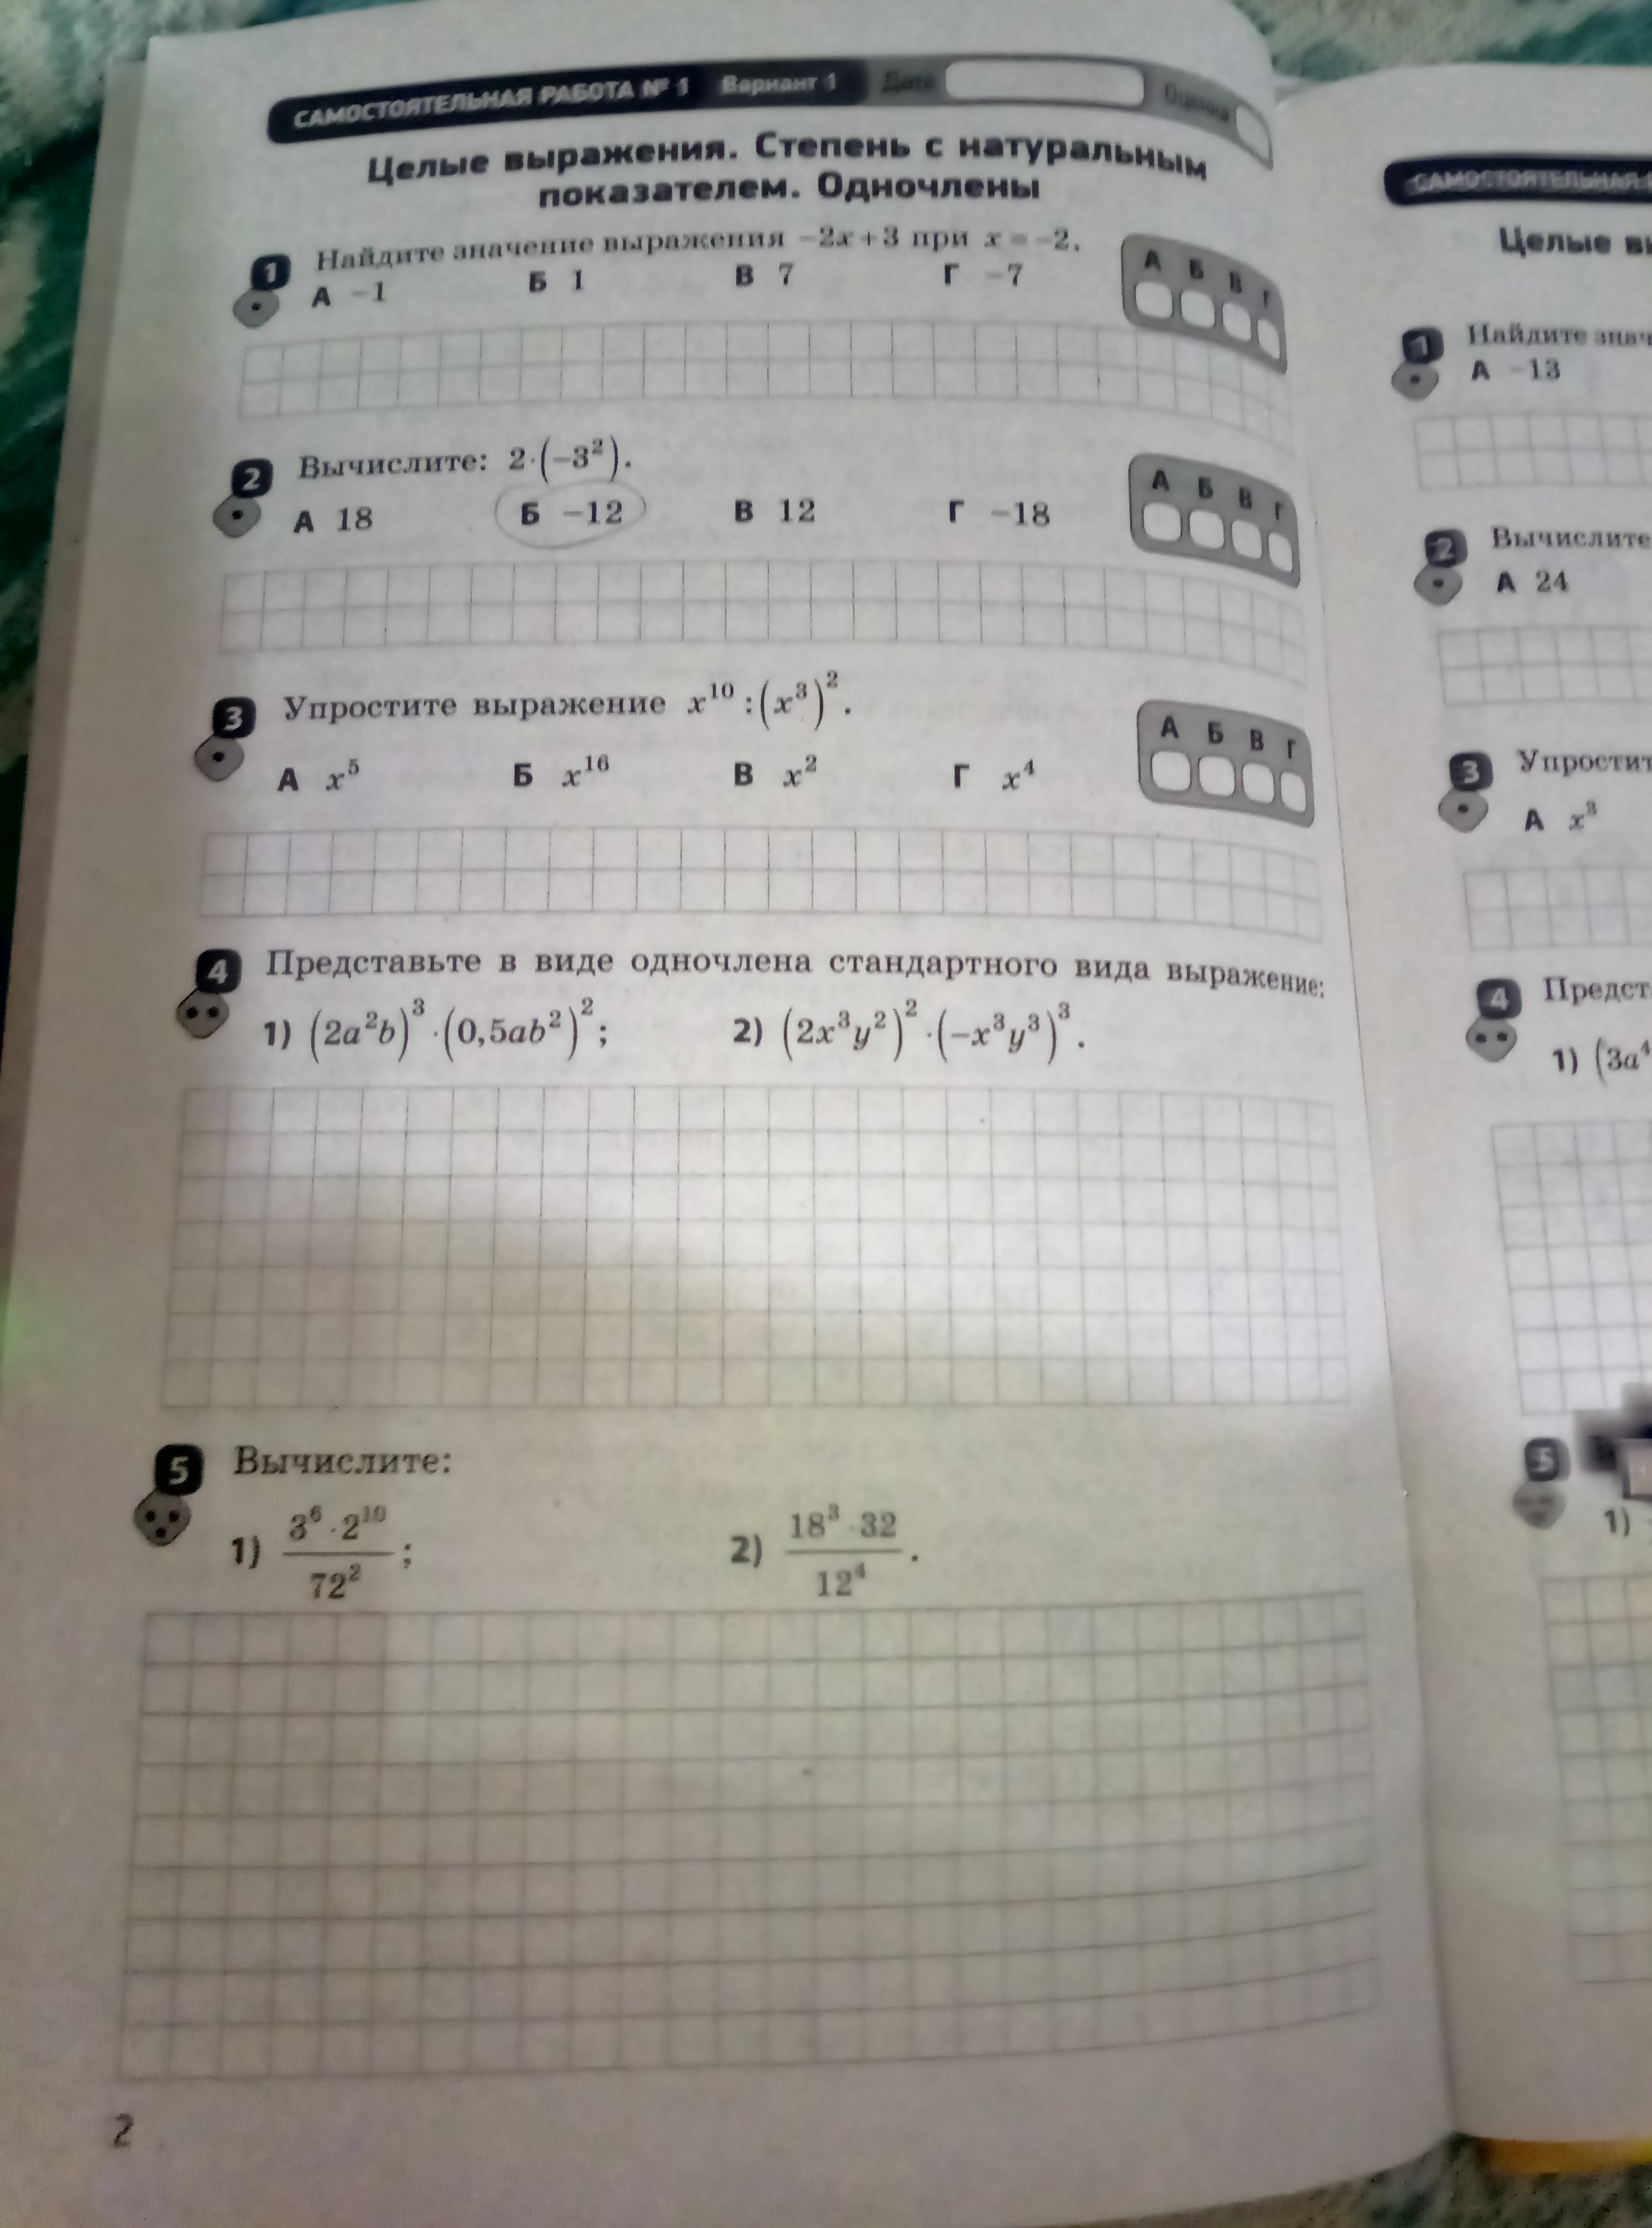 САМОСТОЯТЕЛЬНАЯ РАБОТА № 1 Вариант 1 Дата Оценка
Целые выражения. Степень с натуральным
показателем. Одночлены
1 Найдите значение выражения −2x + 3 при x = −2.
А −1 Б 1 В 7 Г −7
А Б В Г
2 Вычислите: 2·(−3²).
А 18 Б −12 В 12 Г −18
А Б В Г
3 Упростите выражение x¹⁰ : (x³)².
А x⁵ Б x¹⁶ В x² Г x⁴
А Б В Г
4 Представьте в виде одночлена стандартного вида выражение:
1) (2a²b)³ · (0,5ab²)²; 2) (2x³y²)² · (−x³y³)³.
5 Вычислите:
1) 3⁶ · 2¹⁰ / 72² ; 2) 18³ · 32 / 12⁴ .
2
САМОСТОЯТЕЛЬНАЯ
Целые вы
1 Найдите знач
А −13
2 Вычислите
А 24
3 Упростит
А x³
4 Предст
1) (3a⁴
5
1)